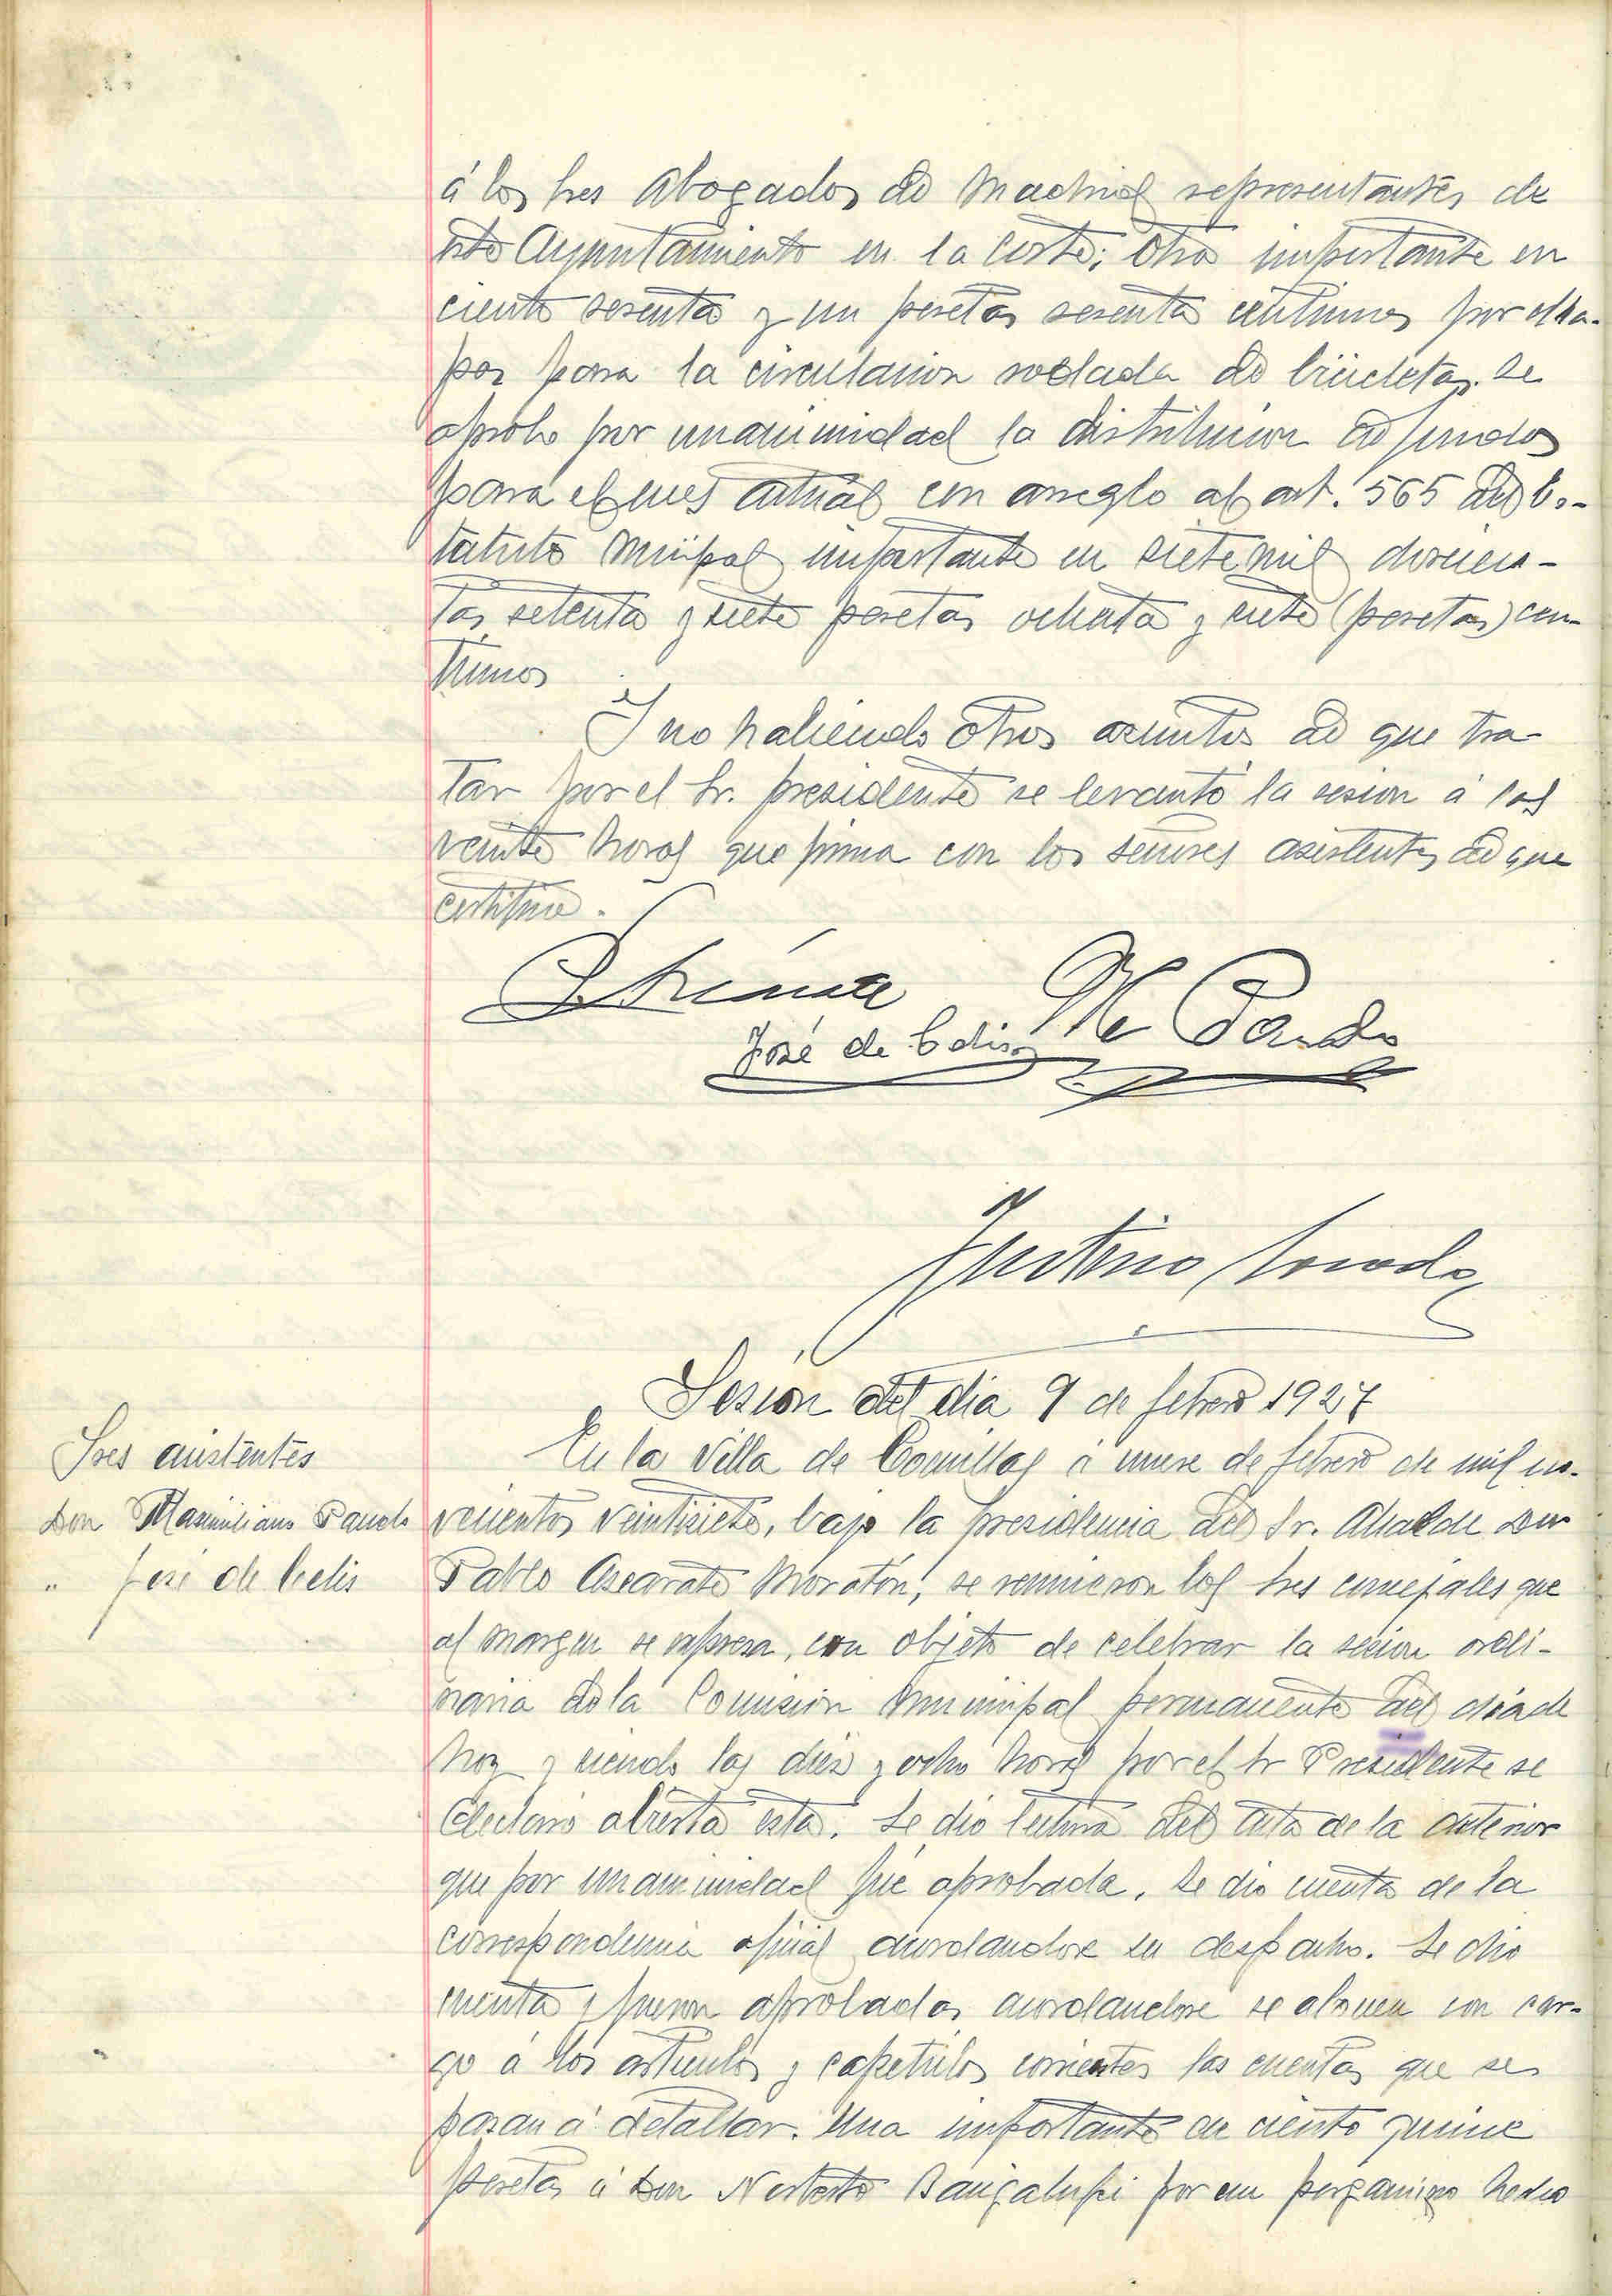 á los tres Abogados de Madrid representantes de
este Ayuntamiento en la Corte; otra importante en
ciento sesenta y un pesetas sesenta centimos por cha-
pas para la circulacion rodada de bicicletas. Se
aprobo por unanimidad la distribucion de fondos
para el mes actual con arreglo al art. 565 del Es-
tatuto Mcipal importante en siete mil doscien-
tas setenta y siete pesetas ochenta y siete (pesetas) cen-
timos
Y no habiendo otros asuntos de que tra-
tar por el Sr. presidente se levantó la sesion á las
veinte horas que firma con los señores asistentes de que
certifico.
José de Celis M Pando
Justino
Sesión del dia 9 de febrero 1927
Sres asistentes
Don Maximiliano Pando
" José de Celis
En la Villa de Comillas á nueve de febrero de mil no-
vecientos veintisiete, bajo la presidencia del Sr. Alcalde Don
Pablo Ascarate Moratón, se reunieron los tres concejales que
al margen se expresa, con objeto de celebrar la sesion ordi-
naria de la Comisión Municipal permanente del dia de
hoy y siendo las diez y ocho horas por el Sr Presidente se
declaró abierta esta. Se dio lectura del acta de la anterior
que por unanimidad fué aprobada. Se dio cuenta de la
correspondencia oficial acordandose su despacho. Se dio
cuenta y fueron aprobadas acordandose se abonen con car-
go á los articulos y capetulos corrientes las cuentas que se
pasan á detallar. Una importante en ciento quince
pesetas á Don Norberto Baigalupi por un pergamino hecho